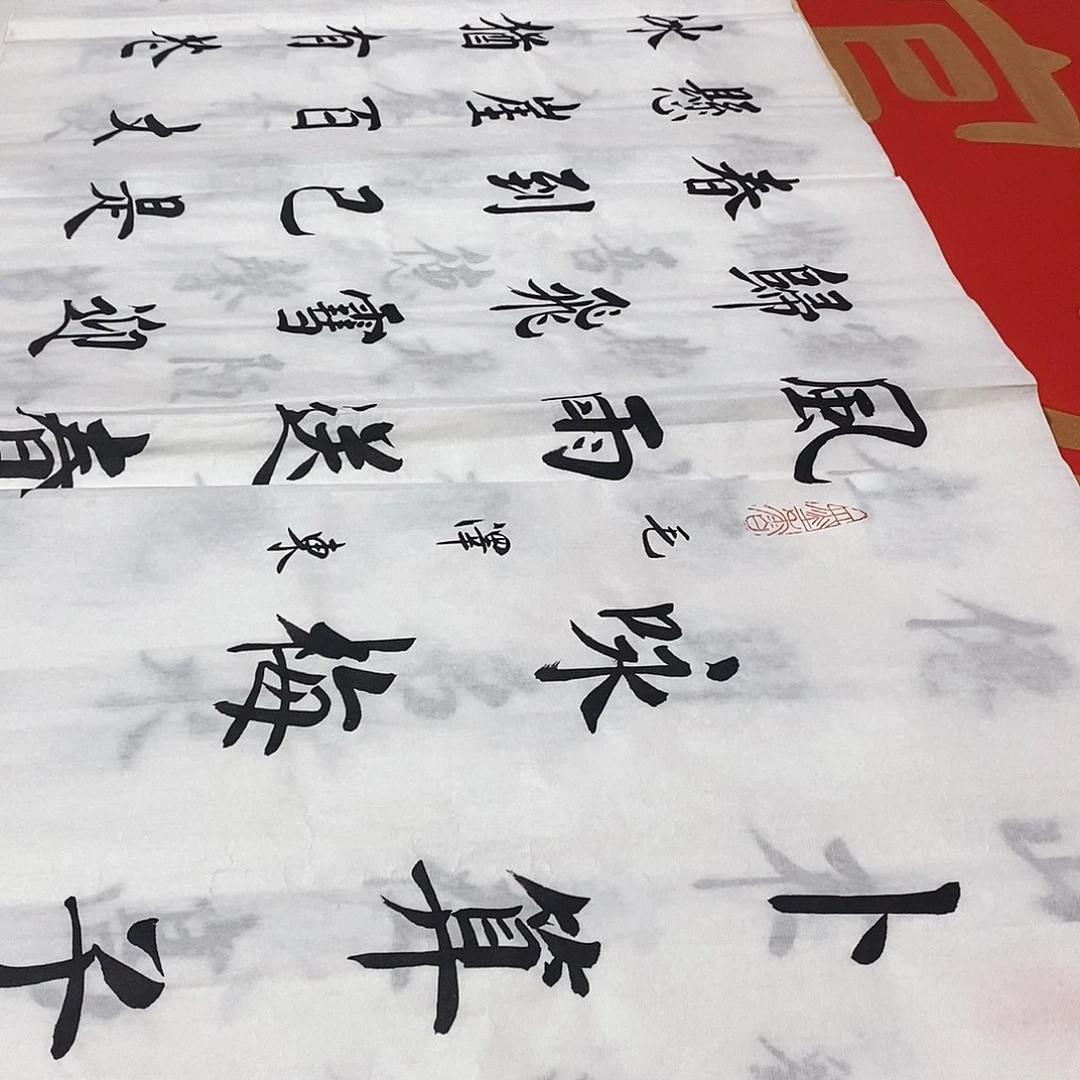 卜算子
咏梅
毛澤東
風雨送春
歸飛雪迎
春到已是
懸崖百丈
冰猶有花